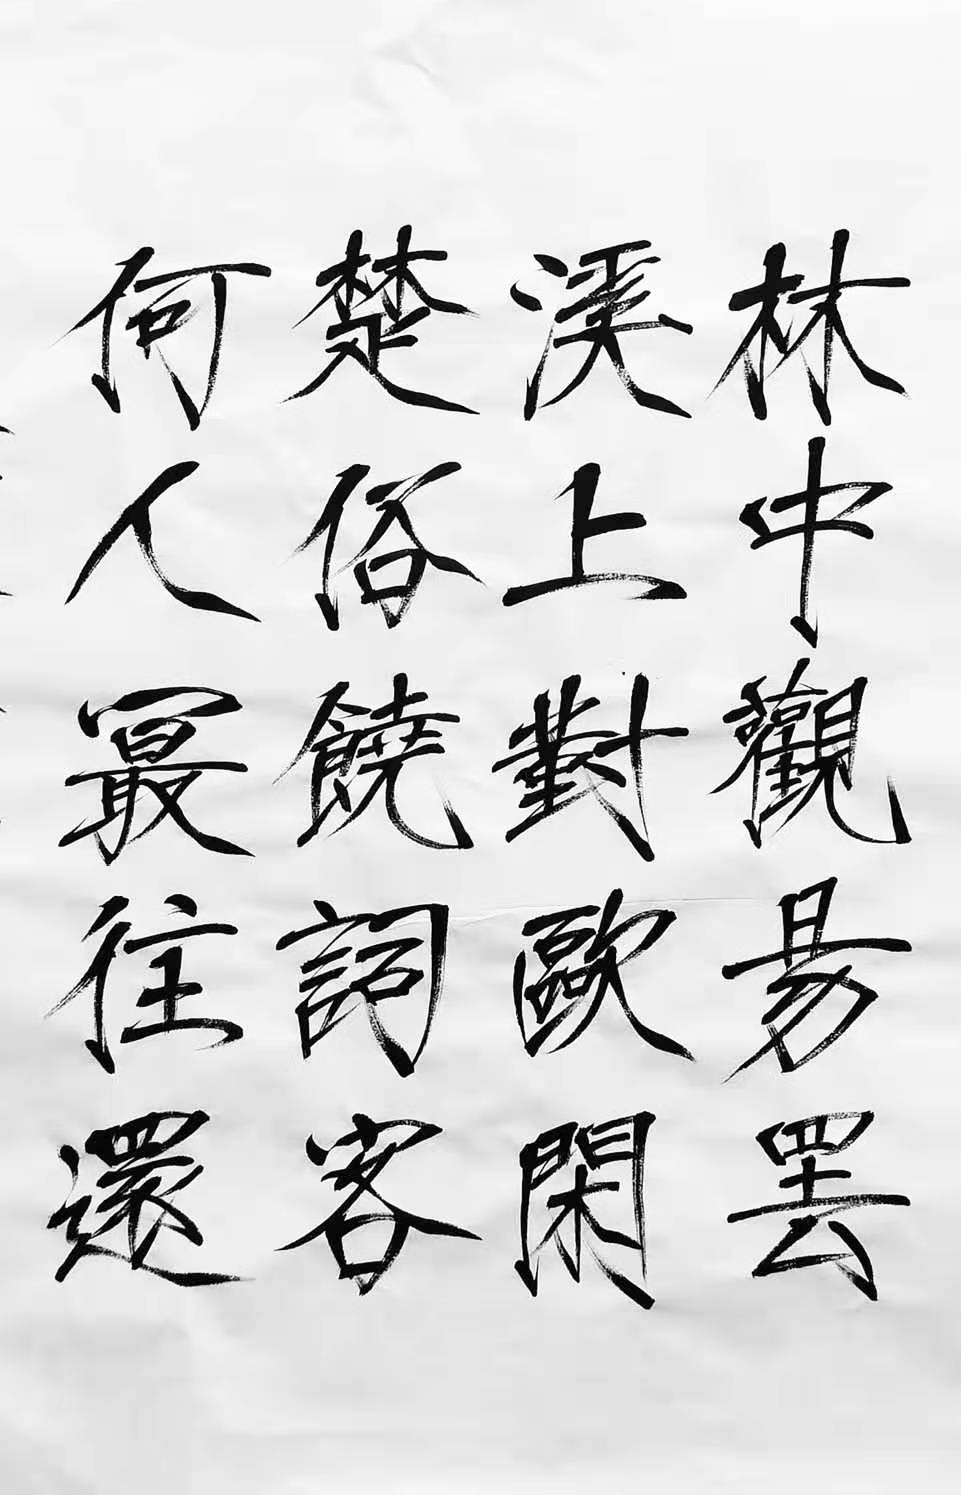 林中觀易罷
溪上對歐閑
楚俗饒詞客
何人最往還